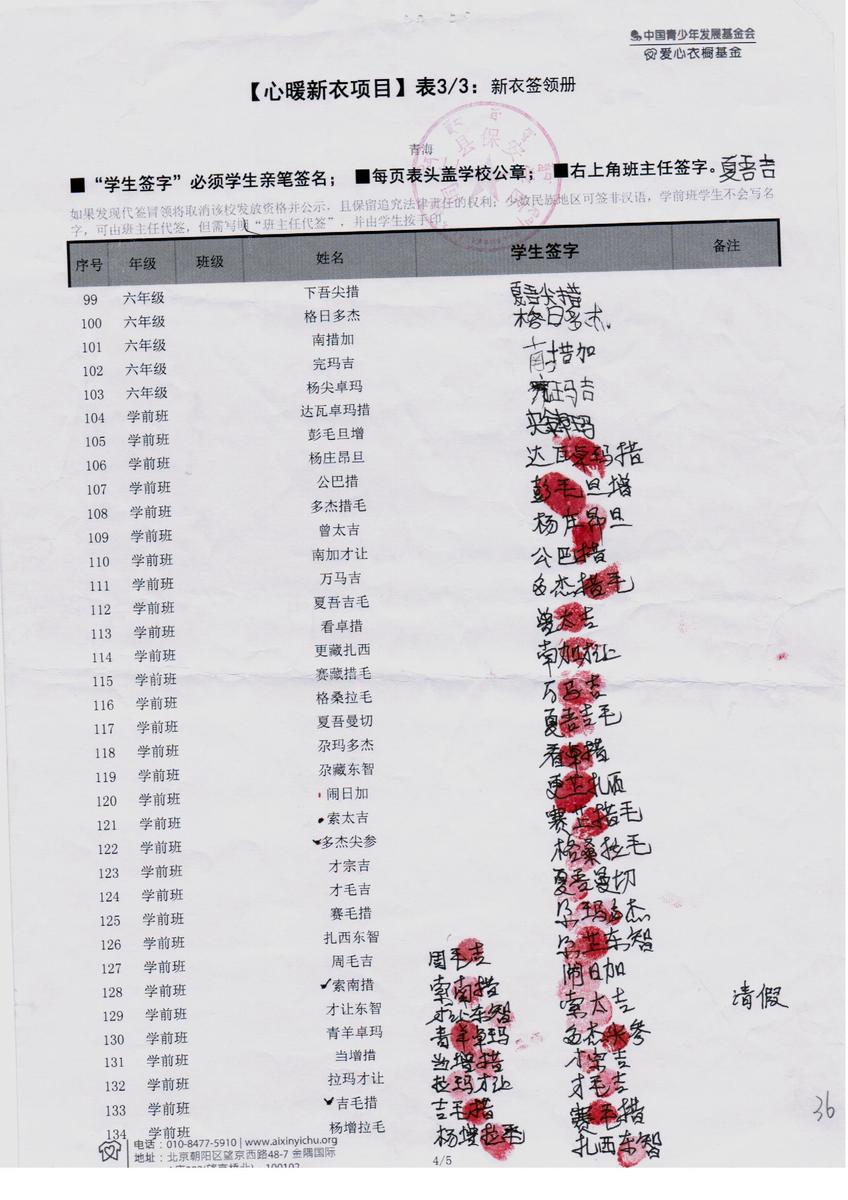 中国青少年发展基金会
爱心衣橱基金
【心暖新衣项目】表3/3：新衣签领册
青海
■“学生签字”必须学生亲笔签名； ■每页表头盖学校公章； ■右上角班主任签字。夏吾吉
如果发现代签冒领将取消该校发放资格并公示，且保留追究法律责任的权利；少数民族地区可签非汉语，学前班学生不会写名
字，可由班主任代签，但需写明“班主任代签”，并由学生按手印。
序号 年级 班级 姓名 学生签字 备注
99 六年级 下吾尖措 夏吾尖措
100 六年级 格日多杰 格日多杰
101 六年级 南措加 南措加
102 六年级 完玛吉 完玛吉
103 六年级 杨尖卓玛
104 学前班 达瓦卓玛措 达瓦卓玛措
105 学前班 彭毛旦增 彭毛旦增
106 学前班 杨庄昂旦 杨庄昂旦
107 学前班 公巴措 公巴措
108 学前班 多杰措毛 多杰措毛
109 学前班 曾太吉 曾太吉
110 学前班 南加才让 南加才让
111 学前班 万马吉 万马吉
112 学前班 夏吾吉毛 夏吾吉毛
113 学前班 看卓措 看卓措
114 学前班 更藏扎西 更芷扎西
115 学前班 赛藏措毛 赛芷措毛
116 学前班 格桑拉毛 格桑拉毛
117 学前班 夏吾曼切 夏吾曼切
118 学前班 尕玛多杰 尕玛多杰
119 学前班 尕藏东智 尕芷东智
120 学前班 闹日加 闹日加
121 学前班 索太吉 索太吉
122 学前班 多杰尖参 多杰尖参
123 学前班 才宗吉 才宗吉
124 学前班 才毛吉 才毛吉
125 学前班 赛毛措 赛毛措
126 学前班 扎西东智 扎西东智
127 学前班 周毛吉 周毛吉
128 学前班 索南措 索南措 请假
129 学前班 才让东智 才让东智
130 学前班 青羊卓玛 青羊卓玛
131 学前班 当增措 当增措
132 学前班 拉玛才让 拉玛才让
133 学前班 吉毛措 吉毛措
134 学前班 杨增拉毛 杨增拉毛
36
电话：010-8477-5910 | www.aixinyichu.org
地址：北京朝阳区望京西路48-7 金隅国际
4/5